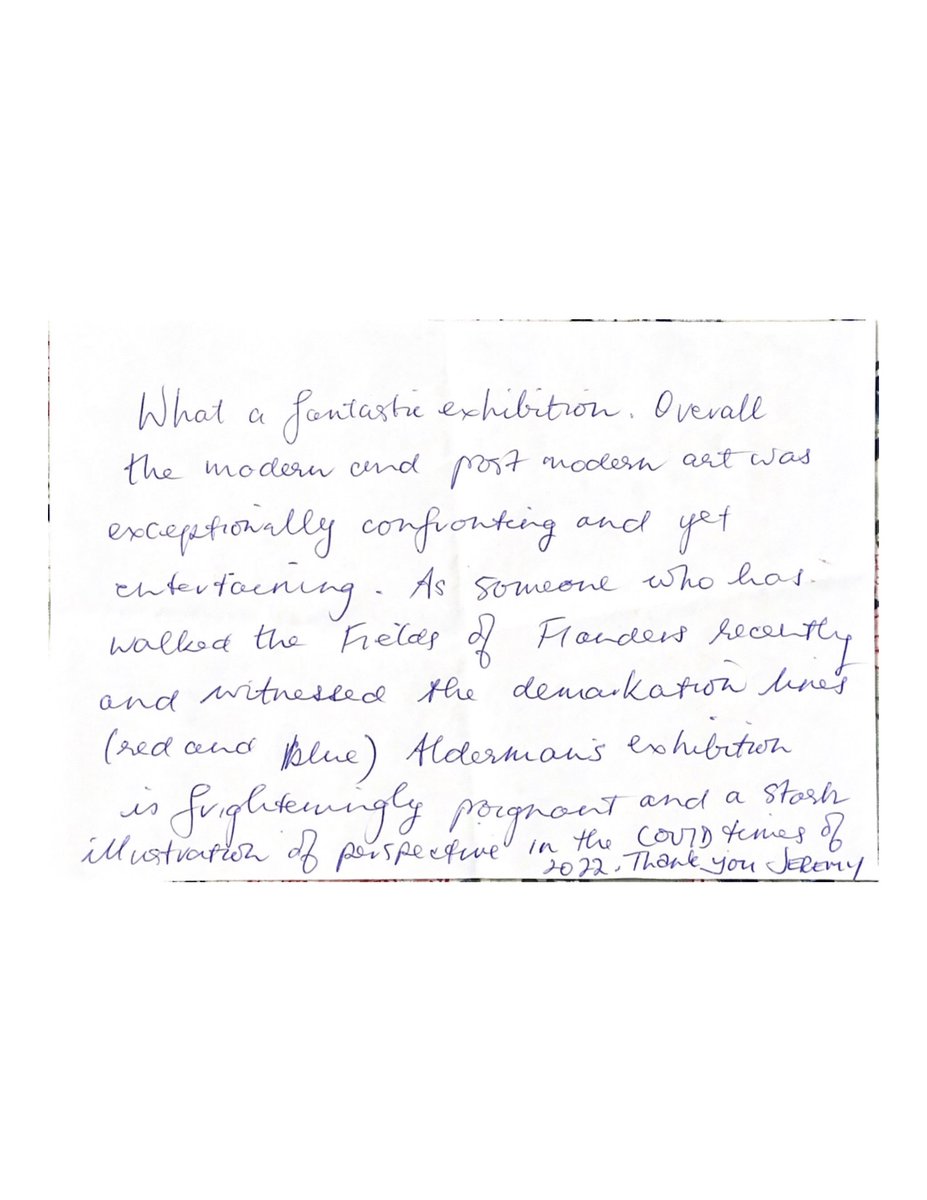 What a fantastic exhibition. Overall
the modern and post modern art was
exceptionally confronting and yet
entertaining. As someone who has
walked the Fields of Flanders recently
and witnessed the demarkation lines
(red and blue) Alderman's exhibition
is frighteningly poignant and a stark
illustration of perspective in the COVID times of
2022. Thank you JEREMY